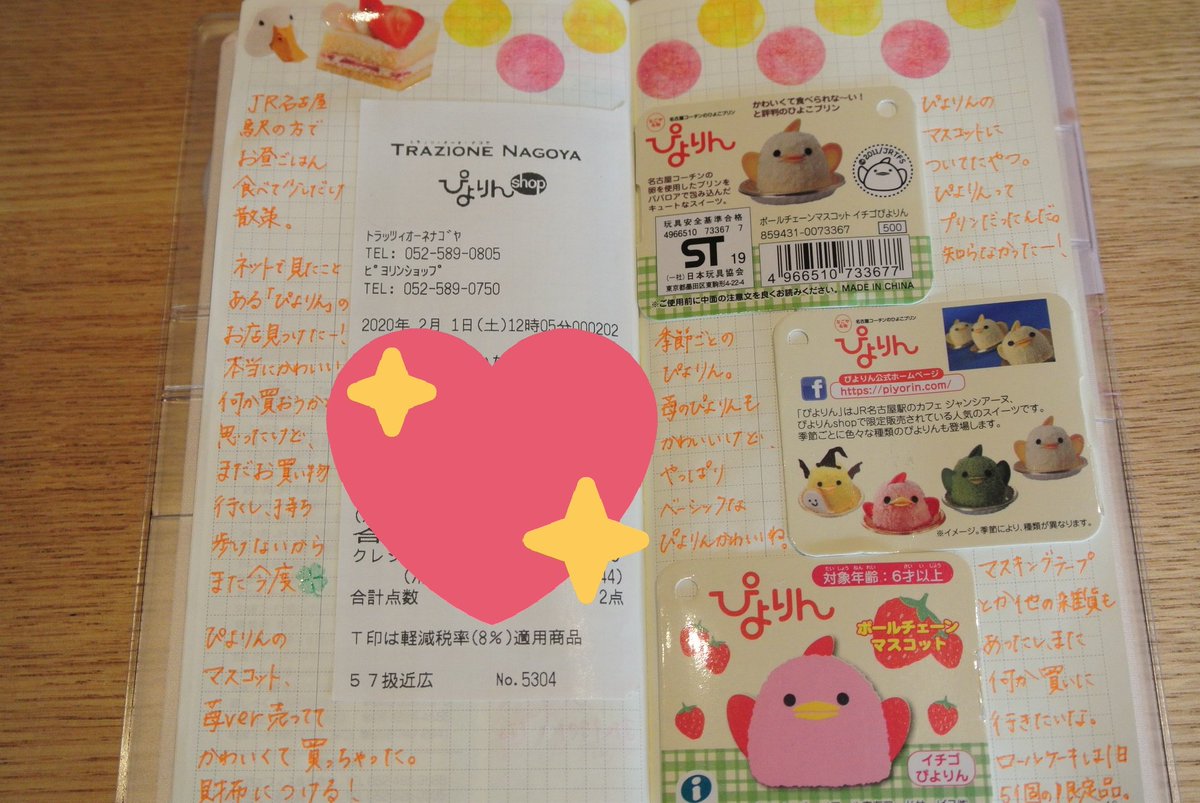 JR名古屋
駅の方で
お昼ごはん
食べて少しだけ
散策。
ネットで見たこと
ある「ぴよりん」の
お店見つけたー!
本当にかわいい
何か買おうか
思ったけど、
まだお買い物
行くし、持ち
歩けないから
また今度
ぴよりんの
マスコット、
苺ver売ってて
かわいくて買っちゃった。
財布につける!
TRAZIONE NAGOYA
ぴよりんshop
トラッツィオーネナゴヤ
TEL: 052-589-0805
ピヨリンショップ
TEL: 052-589-0750
2020年 2月 1日(土)12時05分000202
クレジ
44)
合計点数 2点
T印は軽減税率(8%)適用商品
57扱近広 No.5304
かわいくて食べられな〜い!
と評判のひよこプリン
なごや名物
名古屋コーチンのひよこプリン
ぴよりん
©2011/JRTFS
名古屋コーチンの
卵を使用したプリンを
ババロアで包み込んだ
キュートなスイーツ。
玩具安全基準合格
4966510 73367 7
ST 19
(一社)日本玩具協会
東京都墨田区東駒形4-22-4
ボールチェーンマスコット イチゴぴよりん
859431-0073367 500
4 966510 733677
※ご使用前に中面の注意文を良くお読みください。 MADE IN CHINA
ぴよりんの
マスコットに
ついてたやつ。
ぴよりんって
プリンだったんだ。
知らなかったー!
季節ごとの
ぴよりん。
苺のぴよりんも
かわいいけど、
やっぱり
ベーシックな
ぴよりんかわいいね。
なごや名物
名古屋コーチンのひよこプリン
ぴよりん
ぴよりん公式ホームページ
f https://piyorin.com/
「ぴよりん」はJR名古屋駅のカフェ ジャンシアーヌ、
ぴよりんshopで限定販売されている人気のスイーツです。
季節ごとに色々な種類のぴよりんも登場します。
※イメージ。季節により、種類が異なります。
たいしょうねんれい さいいじょう
対象年齢:6才以上
ぴよりん
ボールチェーン
マスコット
イチゴ
ぴよりん
i
マスキングテープ
とか他の雑貨も
あったし、また
何か買いに
行きたいな。
ロールケーキは1日
5個の限定品。